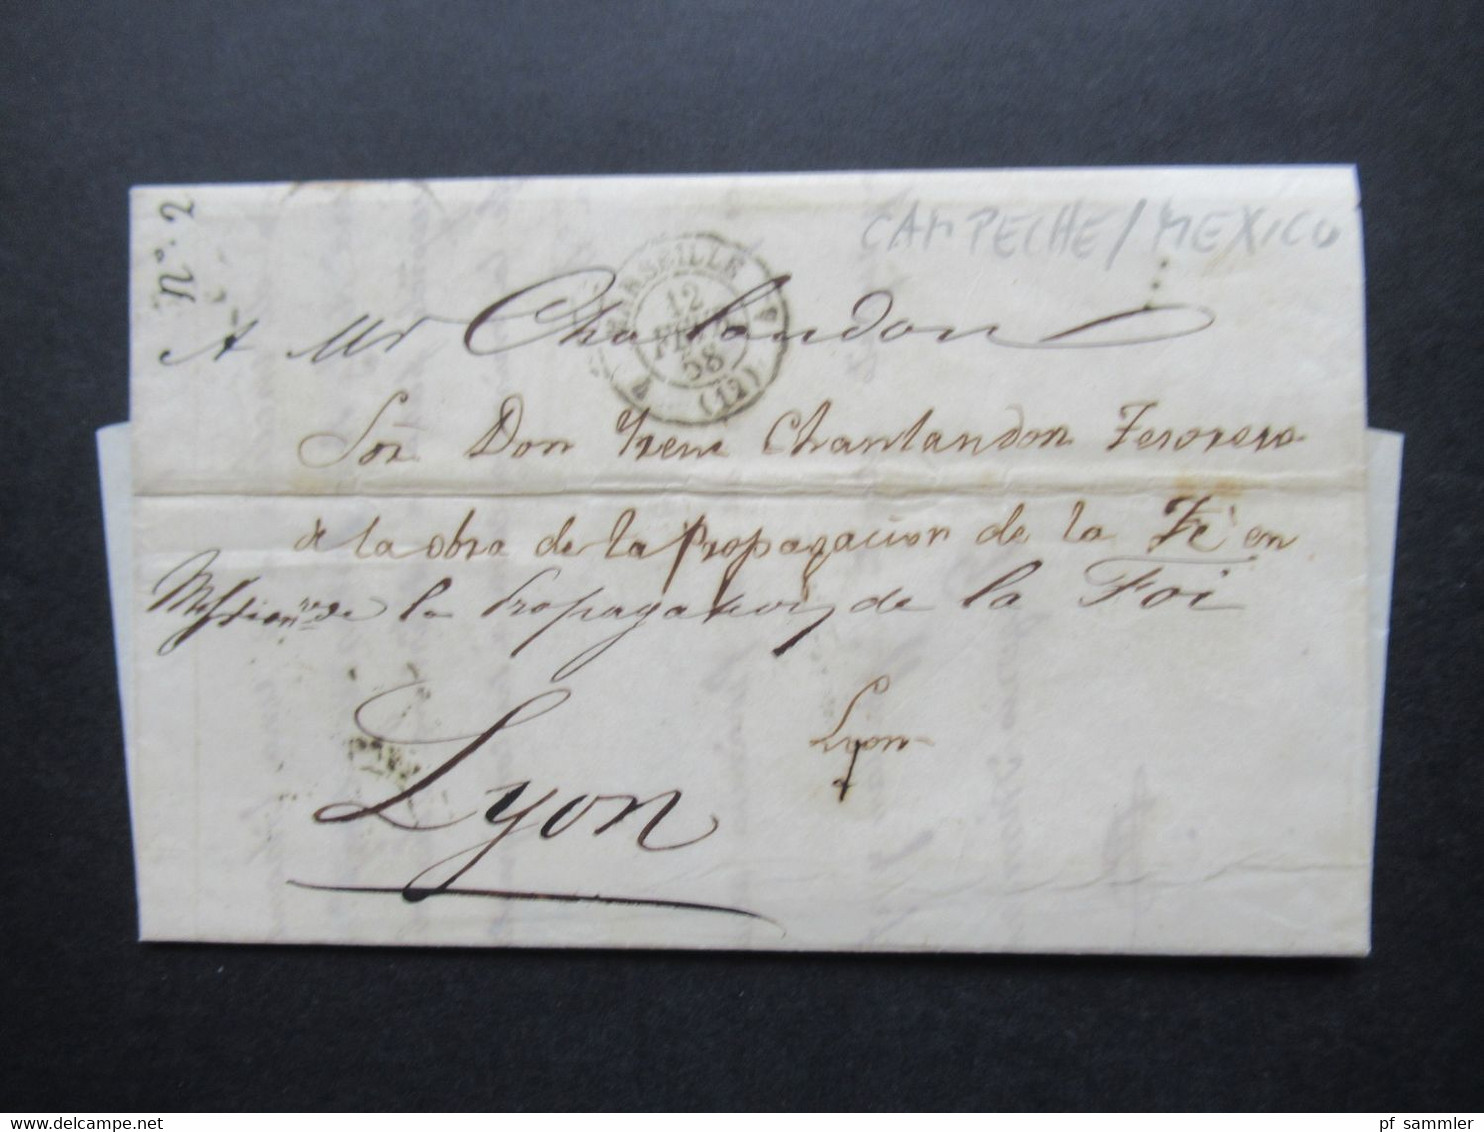 CAMPECHE/MEXICO
Nº. 2
MARSEILLE
12
FEVR
58
(12)
A Mr Chalandon
Sor. Don Irene Chanlandon Tesorero
a la obra de la Propagacion de la Fé en
de la Propagation de la Foi
Lyon
Lyon
www.delcampe.net
pf_sammler